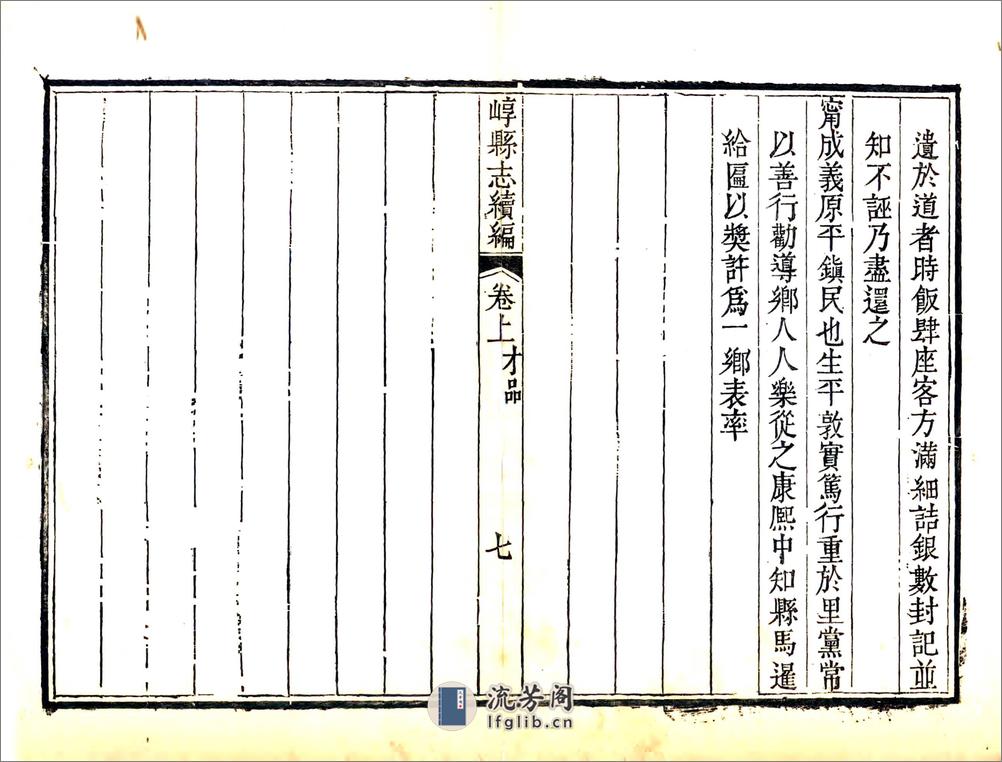 遺於道者時飯肆座客方滿細詰銀數封記並
知不誣乃盡還之
甯成義原平鎮民也生平敦實篤行重於里黨常
以善行勸導鄉人人樂從之康熙中知縣馬暹
給匾以奬許爲一鄉表率
崞縣志續編
卷上
才品
七
流芳阁
lfglib.cn